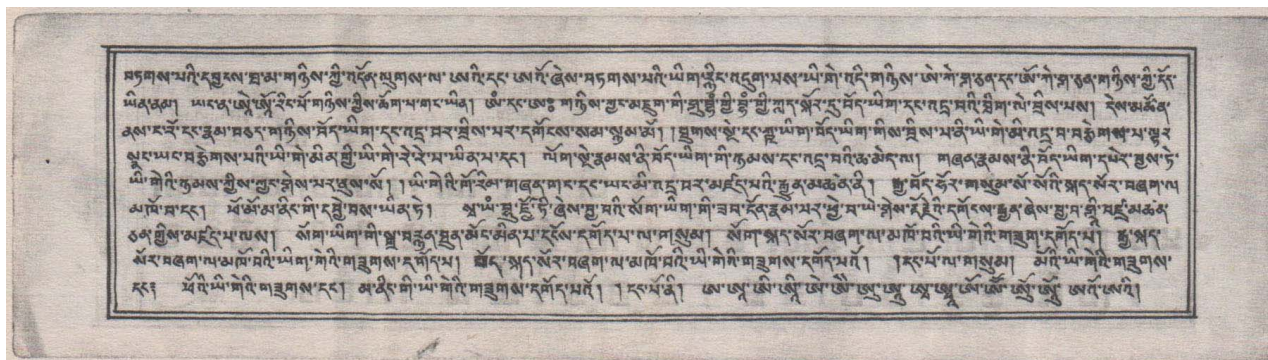 བཏགས་པའི་དབྱངས་བླ་མ་གཉིས་ཀྱི་འདོན་ལུགས་ལ་ ཨའི་དང་ ཨའོ་ཞེས་བཏགས་པའི་ཡིག་རྙིང་འདུག་པས་ཡི་གེ་འདི་གཉིས་ ཨེ་ཀེ་ཧྥ་ཅན་དང་ཨོ་ཀེ་ཧྥ་ཅན་གཉིས་ཀྱི་དོད་
ཡིན་ནམ། ཡང་ན་ རིང་པོ་གཉིས་ཀྱིས་ཆོག་པ་གང་ཡིན། ཨཾ་དང་ཨཿ གཉིས་ཀྱང་མཇུག་གི་ ཀྱི་ ཀྱི་ཀླད་སྐོར་དུ་བོད་ཡིག་དང་འདྲ་བའི་ཐིག་ལེ་བྲིས་པས། དེས་མཚོན་
ནས་ང་རོ་དང་རྣམ་བཅད་གཉིས་བོད་ཡིག་དང་འདྲ་བར་བྲིས་པར་དགོངས་སམ་སྙམ་མོ། །བྲུགས་སྡེ་དང་ཀླུ་ཡིག་བོད་ཡིག་གིས་བྲིས་པ་ནི་ཡི་གེ་མི་འདྲ་བ་བརྩེགས་པ་ལྟར་
སྣང་ཡང་བརྩེགས་པའི་ཡི་གེ་མིན་གྱི་ཡི་གེ་རེ་རེ་པ་ཡིན་པ་དང་། ལོག་སྡེ་རྣམས་ནི་བོད་ཡིག་གི་ཉམས་དང་འདྲ་བའི་ཆ་མེད་ལ། གཞན་རྣམས་ནི་བོད་ཡིག་དཔེར་བྱས་ཏེ་
ཡི་གེའི་ཉམས་ཀྱིས་ཀྱང་རྟོགས་པར་ནུས་སོ། །ཡི་གེའི་གོ་རིམ་གཞན་གང་དང་ཡང་མི་འདྲ་བར་མཛད་པའི་རྒྱུ་མཚན་ནི། རྒྱ་བོད་ཧོར་གསུམ་སོ་སོའི་སྐད་སོར་བཞག་ལ་
མཁོ་བ་དང་། ཕོ་མོ་མ་ནིང་གི་དབྱེ་བས་ཡིན་ཏེ། ཞེས་བྱ་བའི་སོག་ཡིག་གི་ཟབ་དོན་རྣམ་པར་ཕྱེ་བ་ཡེ་ཤེས་རྡོ་རྗེའི་དགོངས་རྒྱན་ཞེས་བྱ་བ་ མཚན་
ཅན་གྱིས་མཛད་པ་ལས། སོག་ཡིག་གི་སྒྲ་བརྙན་ཐུན་མོང་མིན་པ་དངོས་དགོད་པ་ལ་གསུམ། སོག་སྐད་སོར་བཞག་ལ་མཁོ་བའི་ཡི་གེའི་གཟུགས་དགོད་པ། རྒྱ་སྐད་
སོར་བཞག་ལ་མཁོ་བའི་ཡིག་གེའི་གཟུགས་དགོད་པ། བོད་སྐད་སོར་བཞག་ལ་མཁོ་བའི་ཡི་གེའི་གཟུགས་དགོད་པའོ། །དང་པོ་ལ་གསུམ། མོའི་ཡི་གེའི་གཟུགས་
དང་། ཕོའི་ཡི་གེའི་གཟུགས་དང་། མ་ནིང་གི་ཡི་གེའི་གཟུགས་དགོད་པའོ། །དང་པོ་ནི། ཨ་ཨཱ་ཨི་ཨཱི་ ཨེ་ཨཻ་ཨུ་ཨཱུ་ ཨོ་ཨཽ་ ཨའོ་ཨའི།